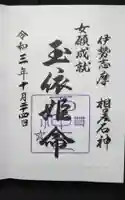 伊勢志摩　相差石神
女願成就
玉依姫命
令和三年十月二十四日